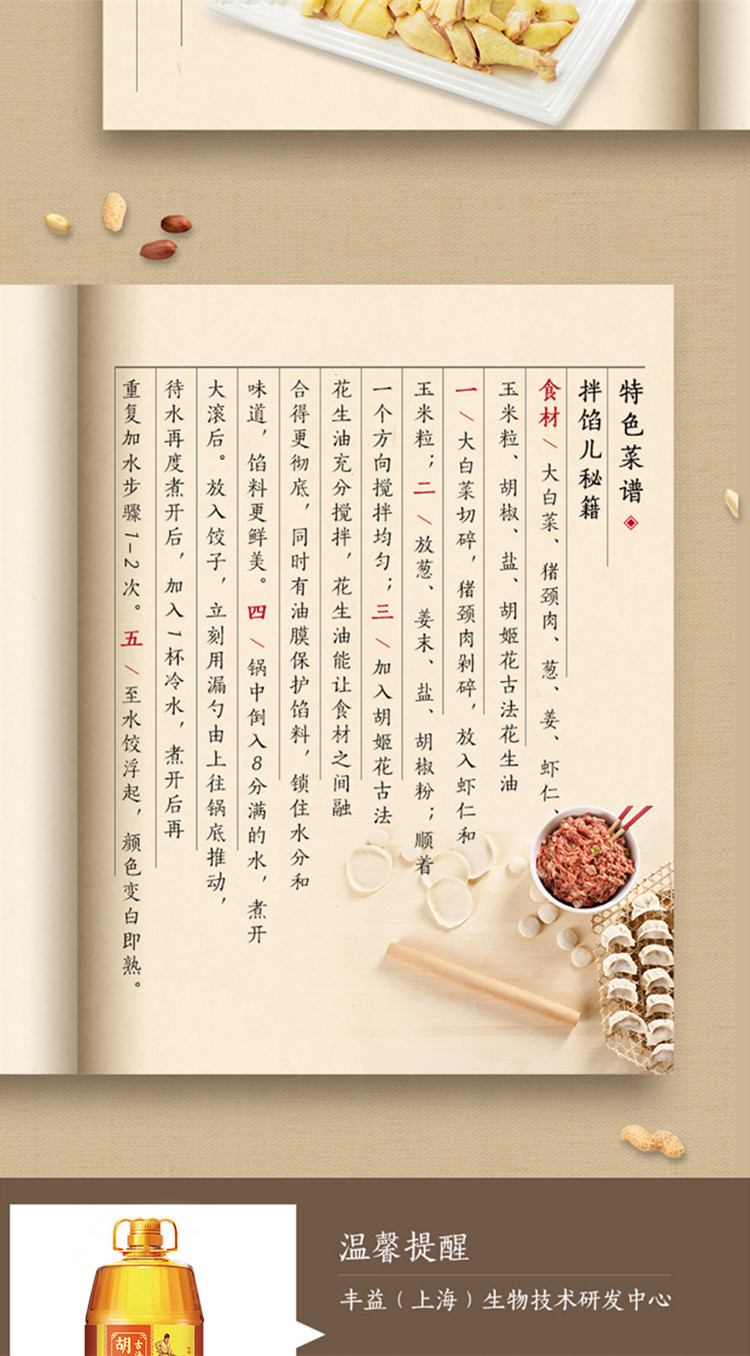 特色菜谱
拌馅儿秘籍
食材/大白菜、猪颈肉、葱、姜、虾仁、
玉米粒、胡椒、盐、胡姬花古法花生油
一/大白菜切碎，猪颈肉剁碎，放入虾仁和
玉米粒；二/放葱、姜末、盐、胡椒粉；顺着
一个方向搅拌均匀；三/加入胡姬花古法
花生油充分搅拌，花生油能让食材之间融
合得更彻底，同时有油膜保护馅料，锁住水分和
味道，馅料更鲜美。四/锅中倒入8分满的水，煮开
大滚后。放入饺子，立刻用漏勺由上往锅底推动，
待水再度煮开后，加入1杯冷水，煮开后再
重复加水步骤1-2次。五/至水饺浮起，颜色变白即熟。
温馨提醒
丰益（上海）生物技术研发中心
胡
古法